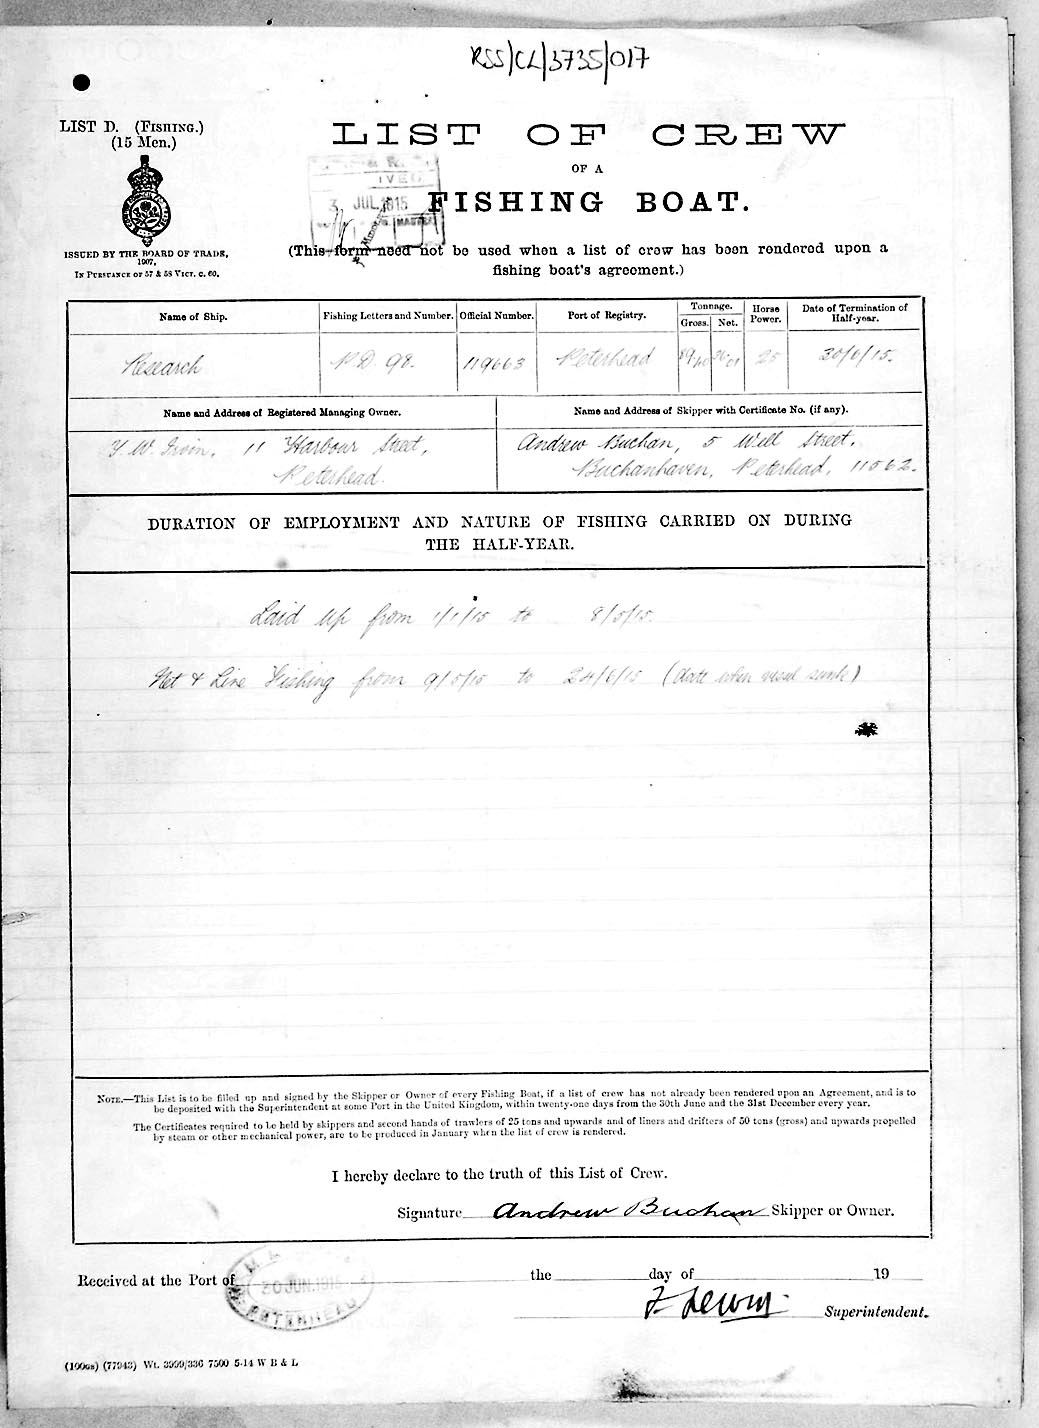 RSS/CL/3735/017
LIST D. (FISHING.)
(15 Men.)
LIST OF CREW
OF A
FISHING BOAT.
3 JUL 1915
ISSUED BY THE BOARD OF TRADE,
1907,
IN PURSUANCE OF 57 & 58 VICT. C. 60.
(This form need not be used when a list of crew has been rendered upon a
fishing boat's agreement.)
Name of Ship. Fishing Letters and Number. Official Number. Port of Registry. Tonnage. Gross. Net. Horse Power. Date of Termination of Half-year.
Research P.D. 98. 119663 Peterhead 25 30/6/15.
Name and Address of Registered Managing Owner. Name and Address of Skipper with Certificate No. (if any).
Irvin, 11 Harbour Street, Andrew Buchan, 5 Well Street,
Peterhead. Buchanhaven, Peterhead, 11562.
DURATION OF EMPLOYMENT AND NATURE OF FISHING CARRIED ON DURING
THE HALF-YEAR.
Laid up from 1/1/15 to 8/5/15.
Net & Line Fishing from 9/5/15 to 24/6/15 (date when vessel sunk)
NOTE.—This List is to be filled up and signed by the Skipper or Owner of every Fishing Boat, if a list of crew has not already been rendered upon an Agreement, and is to
be deposited with the Superintendent at some Port in the United Kingdom, within twenty-one days from the 30th June and the 31st December every year.
The Certificates required to be held by skippers and second hands of trawlers of 25 tons and upwards and of liners and drifters of 50 tons (gross) and upwards propelled
by steam or other mechanical power, are to be produced in January when the list of crew is rendered.
I hereby declare to the truth of this List of Crew.
Signature Andrew Buchan Skipper or Owner.
Received at the Port of the day of 19
JUN. 1915
PETERHEAD
Superintendent.
(10068) (77943) Wt. 3999/336 7500 5-14 W B & L